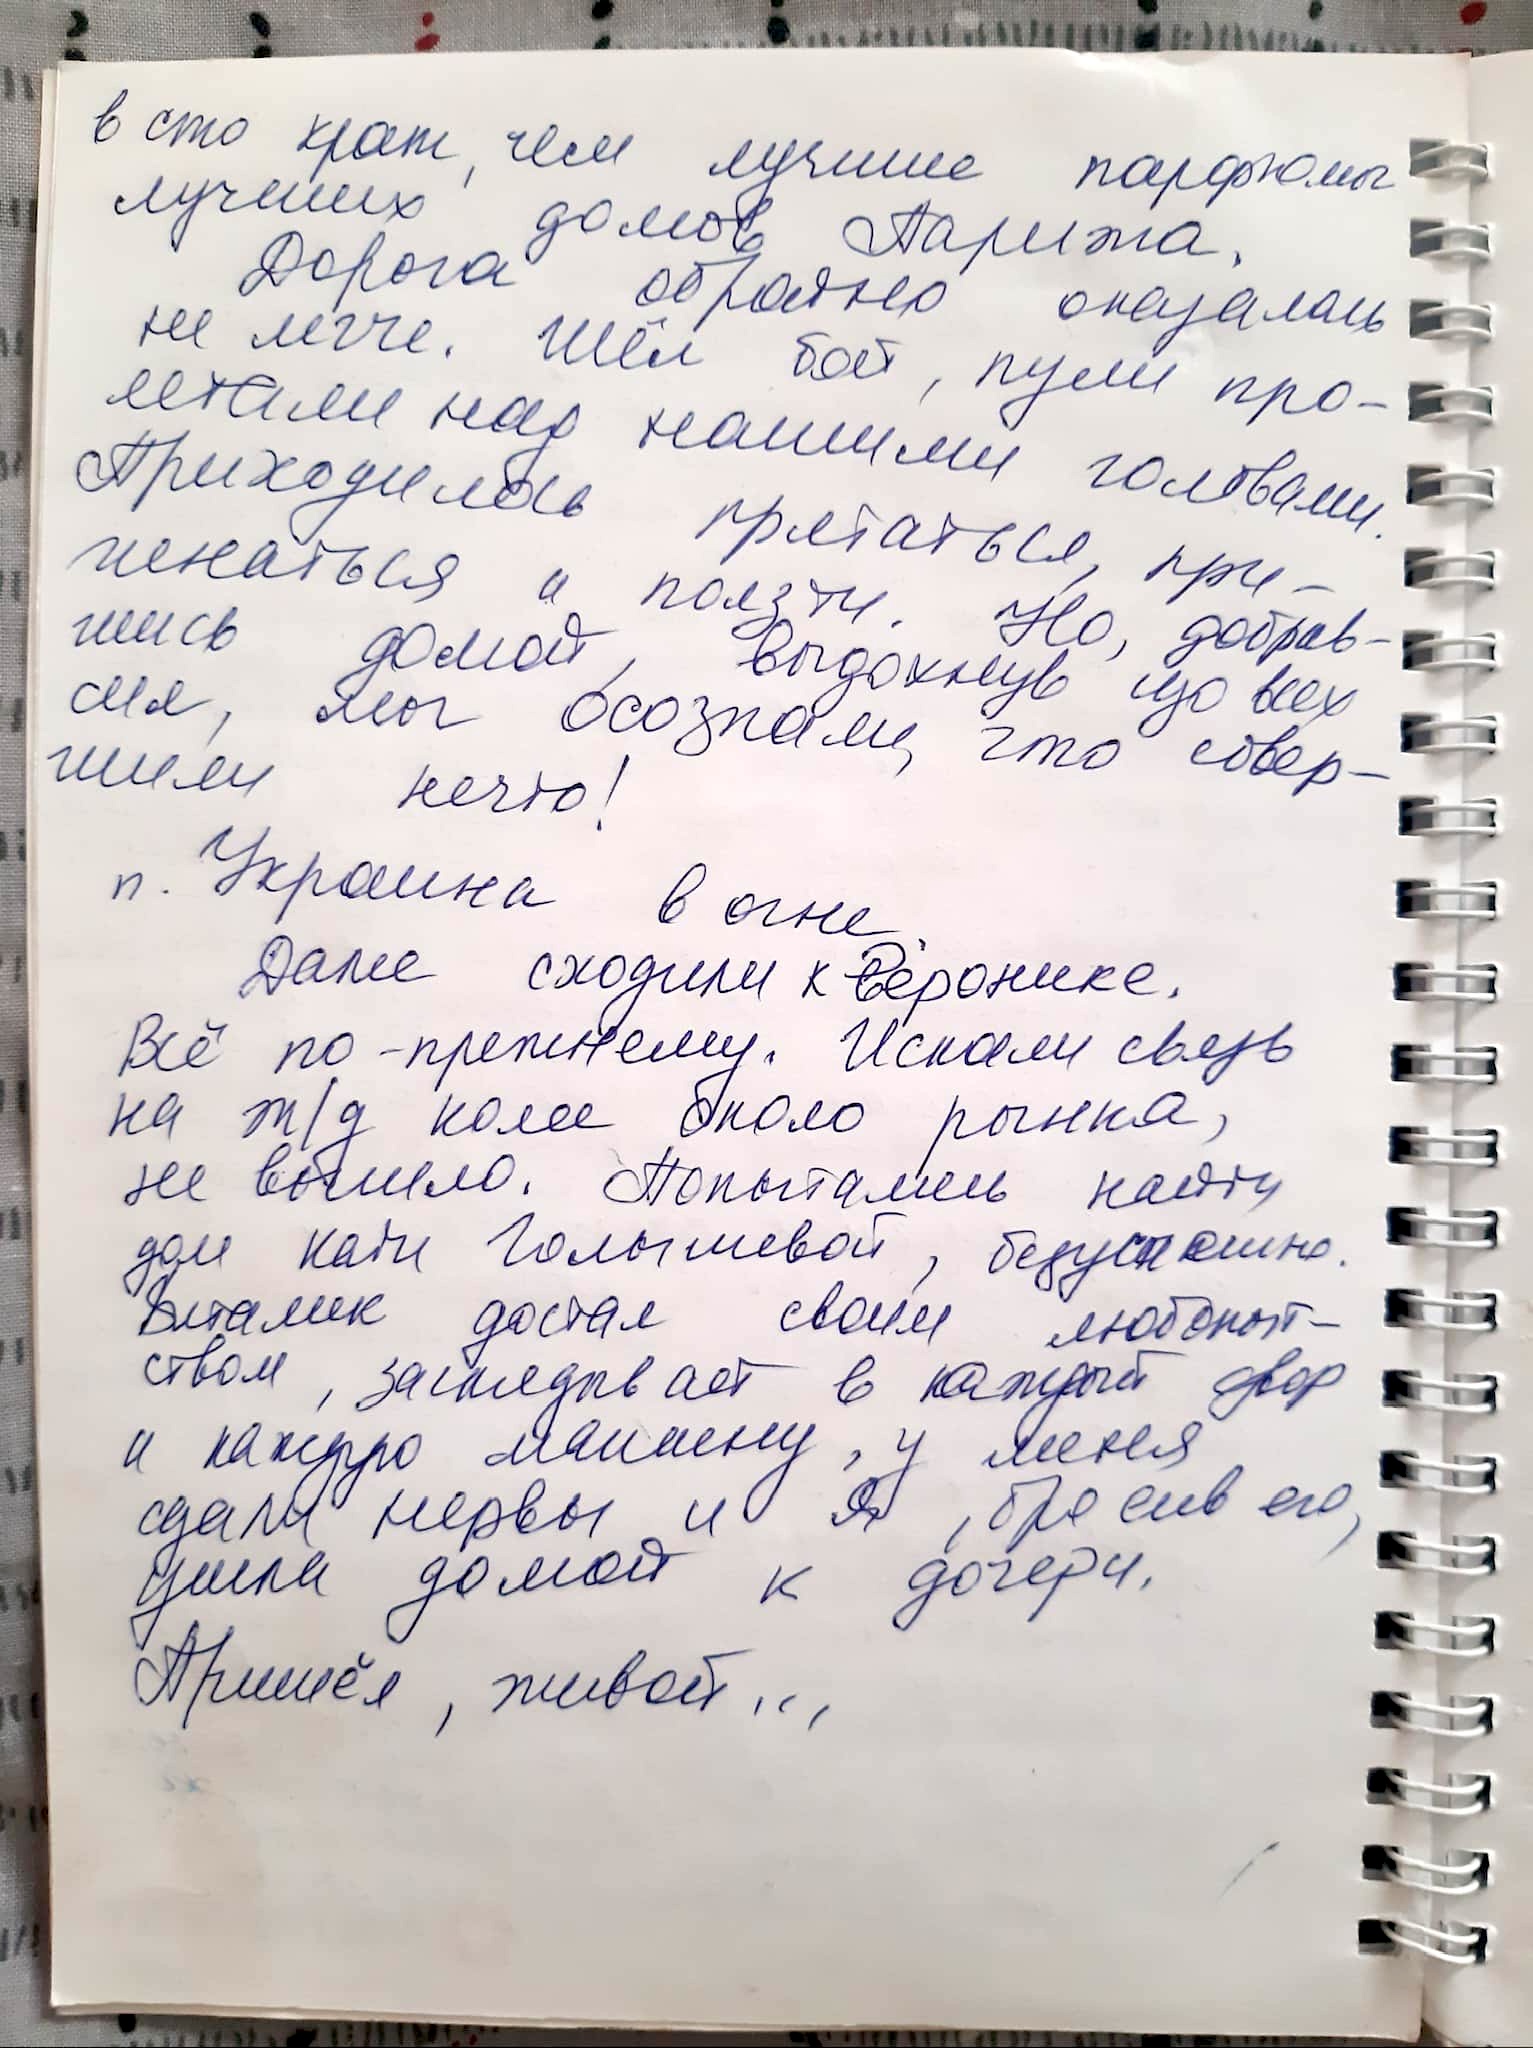 в сто крат, чем лучшие парфюмы
лучших домов Парижа.
Дорога обратно оказалась
не легче. Шёл бой, пули про-
летали над нашими головами.
Приходилось прятаться, при-
жиматься и ползти. Но, добрав-
шись домой, выдохнув изо всех
сил, мы осознали, что совер-
шили нечто!
п. Украина в огне
Даже сходили к Веронике.
Всё по-прежнему. Искали связь
на ж/д коле около рынка,
не вышло. Попытались найти
дом Кати Голышевой, безуспешно.
Виталик достал своим любопыт-
ством, заглядывает в каждый двор
и каждую машину, у меня
сдали нервы и я, бросив его,
ушла домой к дочери.
Пришёл, живой...